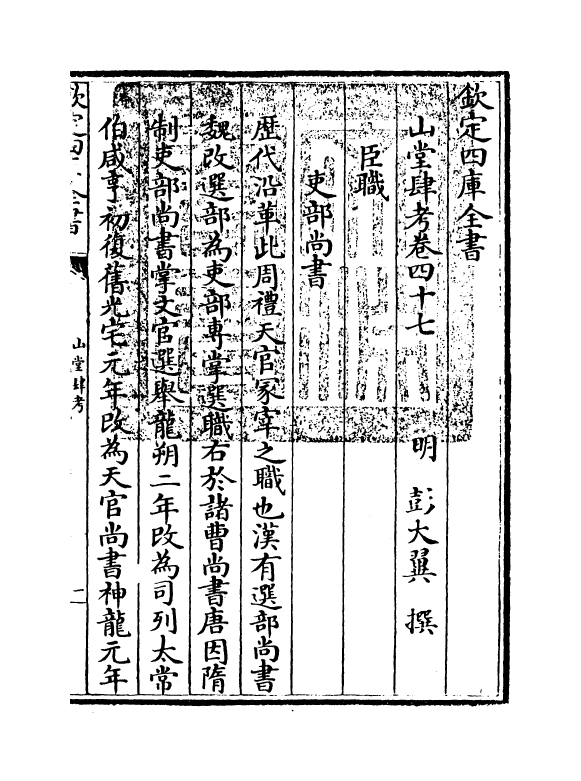 欽定四庫全書
山堂肆考卷四十七　明　彭大翼　撰
臣職
吏部尚書
歷代沿革此周禮天官冢宰之職也漢有選部尚書
魏改選部為吏部專掌選職右於諸曹尚書唐因隋
制吏部尚書掌文官選舉龍朔二年改為司列太常
伯咸亨初復舊光宅元年改為天官尚書神龍元年
欽定四庫全書
山堂肆考